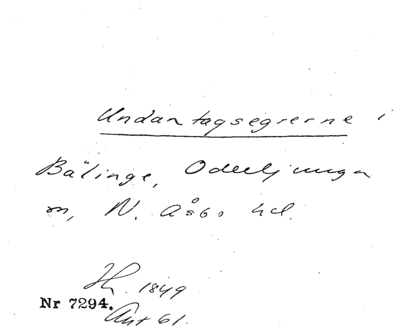 Undantagsegrerne i
Bälinge, Oderljunga
m, N. Åsbo hd.
1849
Nr 7294.
61.